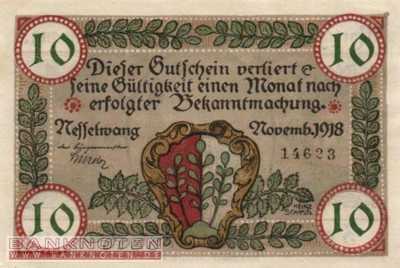 10 10
Dieser Gutschein verliert
seine Gültigkeit einen Monat nach
erfolgter Bekanntmachung.
Nesselwang Novemb. 1918
der Bürgermeister 14623
10 10
BANKNOTEN
WWW.BANKNOTEN.DE